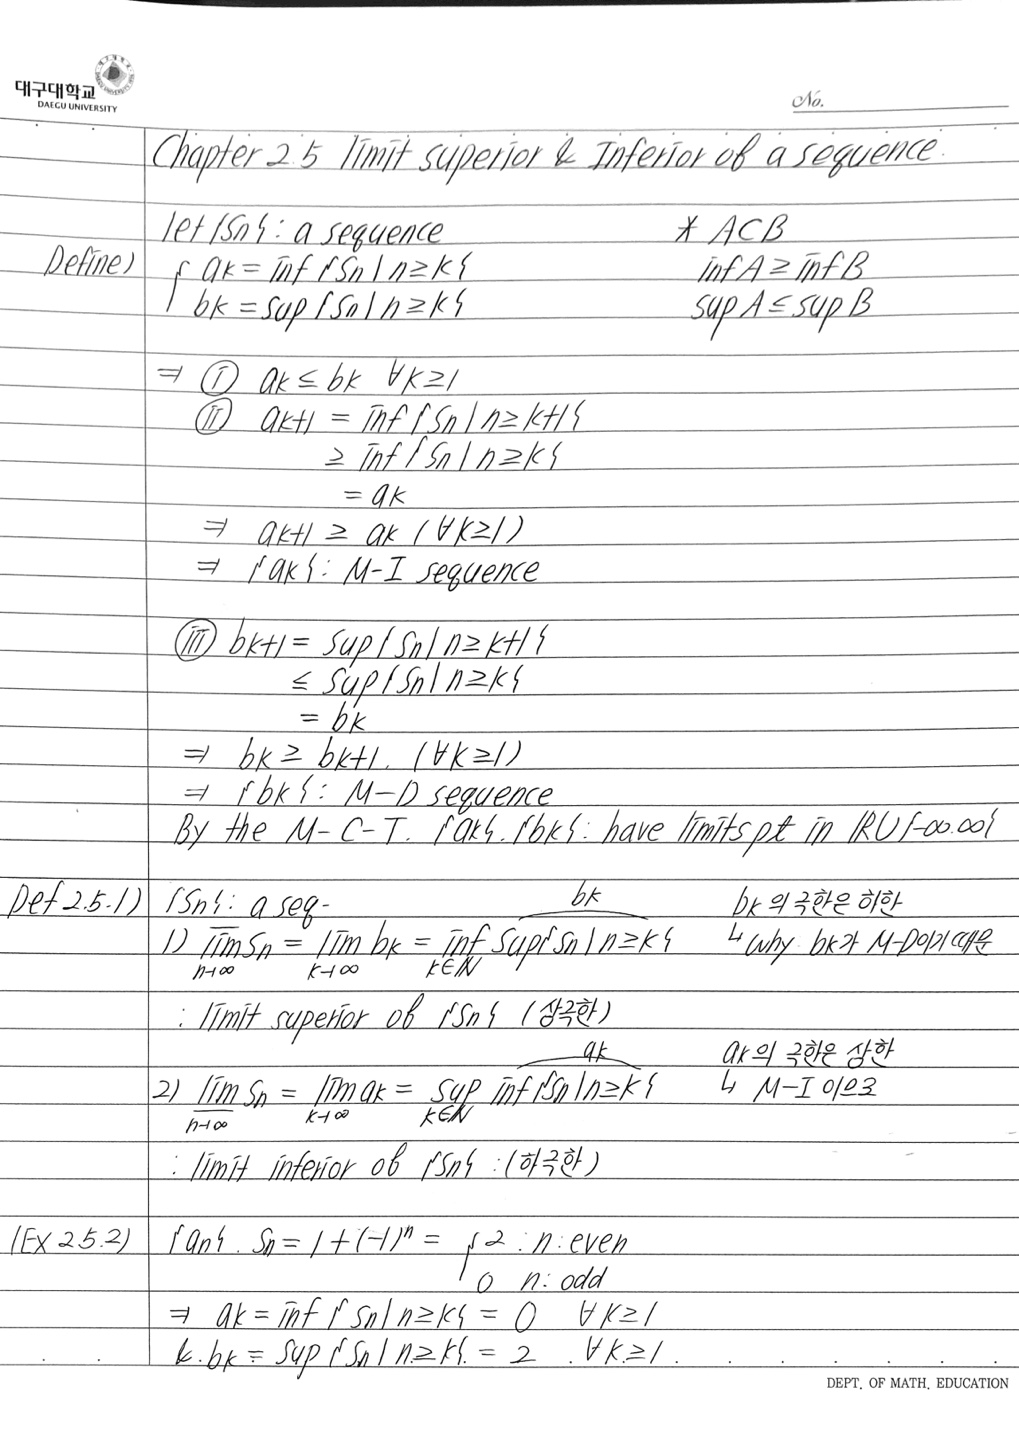 대구대학교
DAEGU UNIVERSITY
No.
Chapter 2.5 limit superior & Inferior of a sequence.
let {Sn}: a sequence
* A⊂B
Define)
{ ak = inf {Sn | n ≥ k}
inf A ≥ inf B
bk = sup {Sn | n ≥ k}
sup A ≤ sup B
⇒ ⓘ ak ≤ bk ∀k≥1
ⓘⓘ ak+1 = inf {Sn | n ≥ k+1}
≥ inf {Sn | n ≥ k}
= ak
⇒ ak+1 ≥ ak (∀k≥1)
⇒ {ak}: M-I sequence
ⓘⓘⓘ bk+1 = sup {Sn | n ≥ k+1}
≤ sup {Sn | n ≥ k}
= bk
⇒ bk ≥ bk+1. (∀k≥1)
⇒ {bk}: M-D sequence
By the M-C-T. {ak}. {bk}: have limits pt in ℝ∪{-∞.∞}
Def 2.5.1) {Sn}: a seq-
bk
bk의 극한은 하한
1) lim̅ Sn = lim bk = inf sup{Sn | n ≥ k}
↳ why: bk가 M-D이기 때문
n→∞ k→∞ k∈ℕ
: limit superior of {Sn} (상극한)
ak
ak의 극한은 상한
2) l̲i̲m̲ Sn = lim ak = sup inf{Sn | n ≥ k}
↳ M-I 이므로
n→∞ k→∞ k∈ℕ
: limit inferior of {Sn} :(하극한)
(Ex 2.5.2) {an}. Sn = 1+(-1)ⁿ = { 2 : n: even
0 n: odd
⇒ ak = inf {Sn | n ≥ k} = 0 ∀k≥1
& bk = sup {Sn | n ≥ k} = 2 ∀k≥1
DEPT. OF MATH. EDUCATION